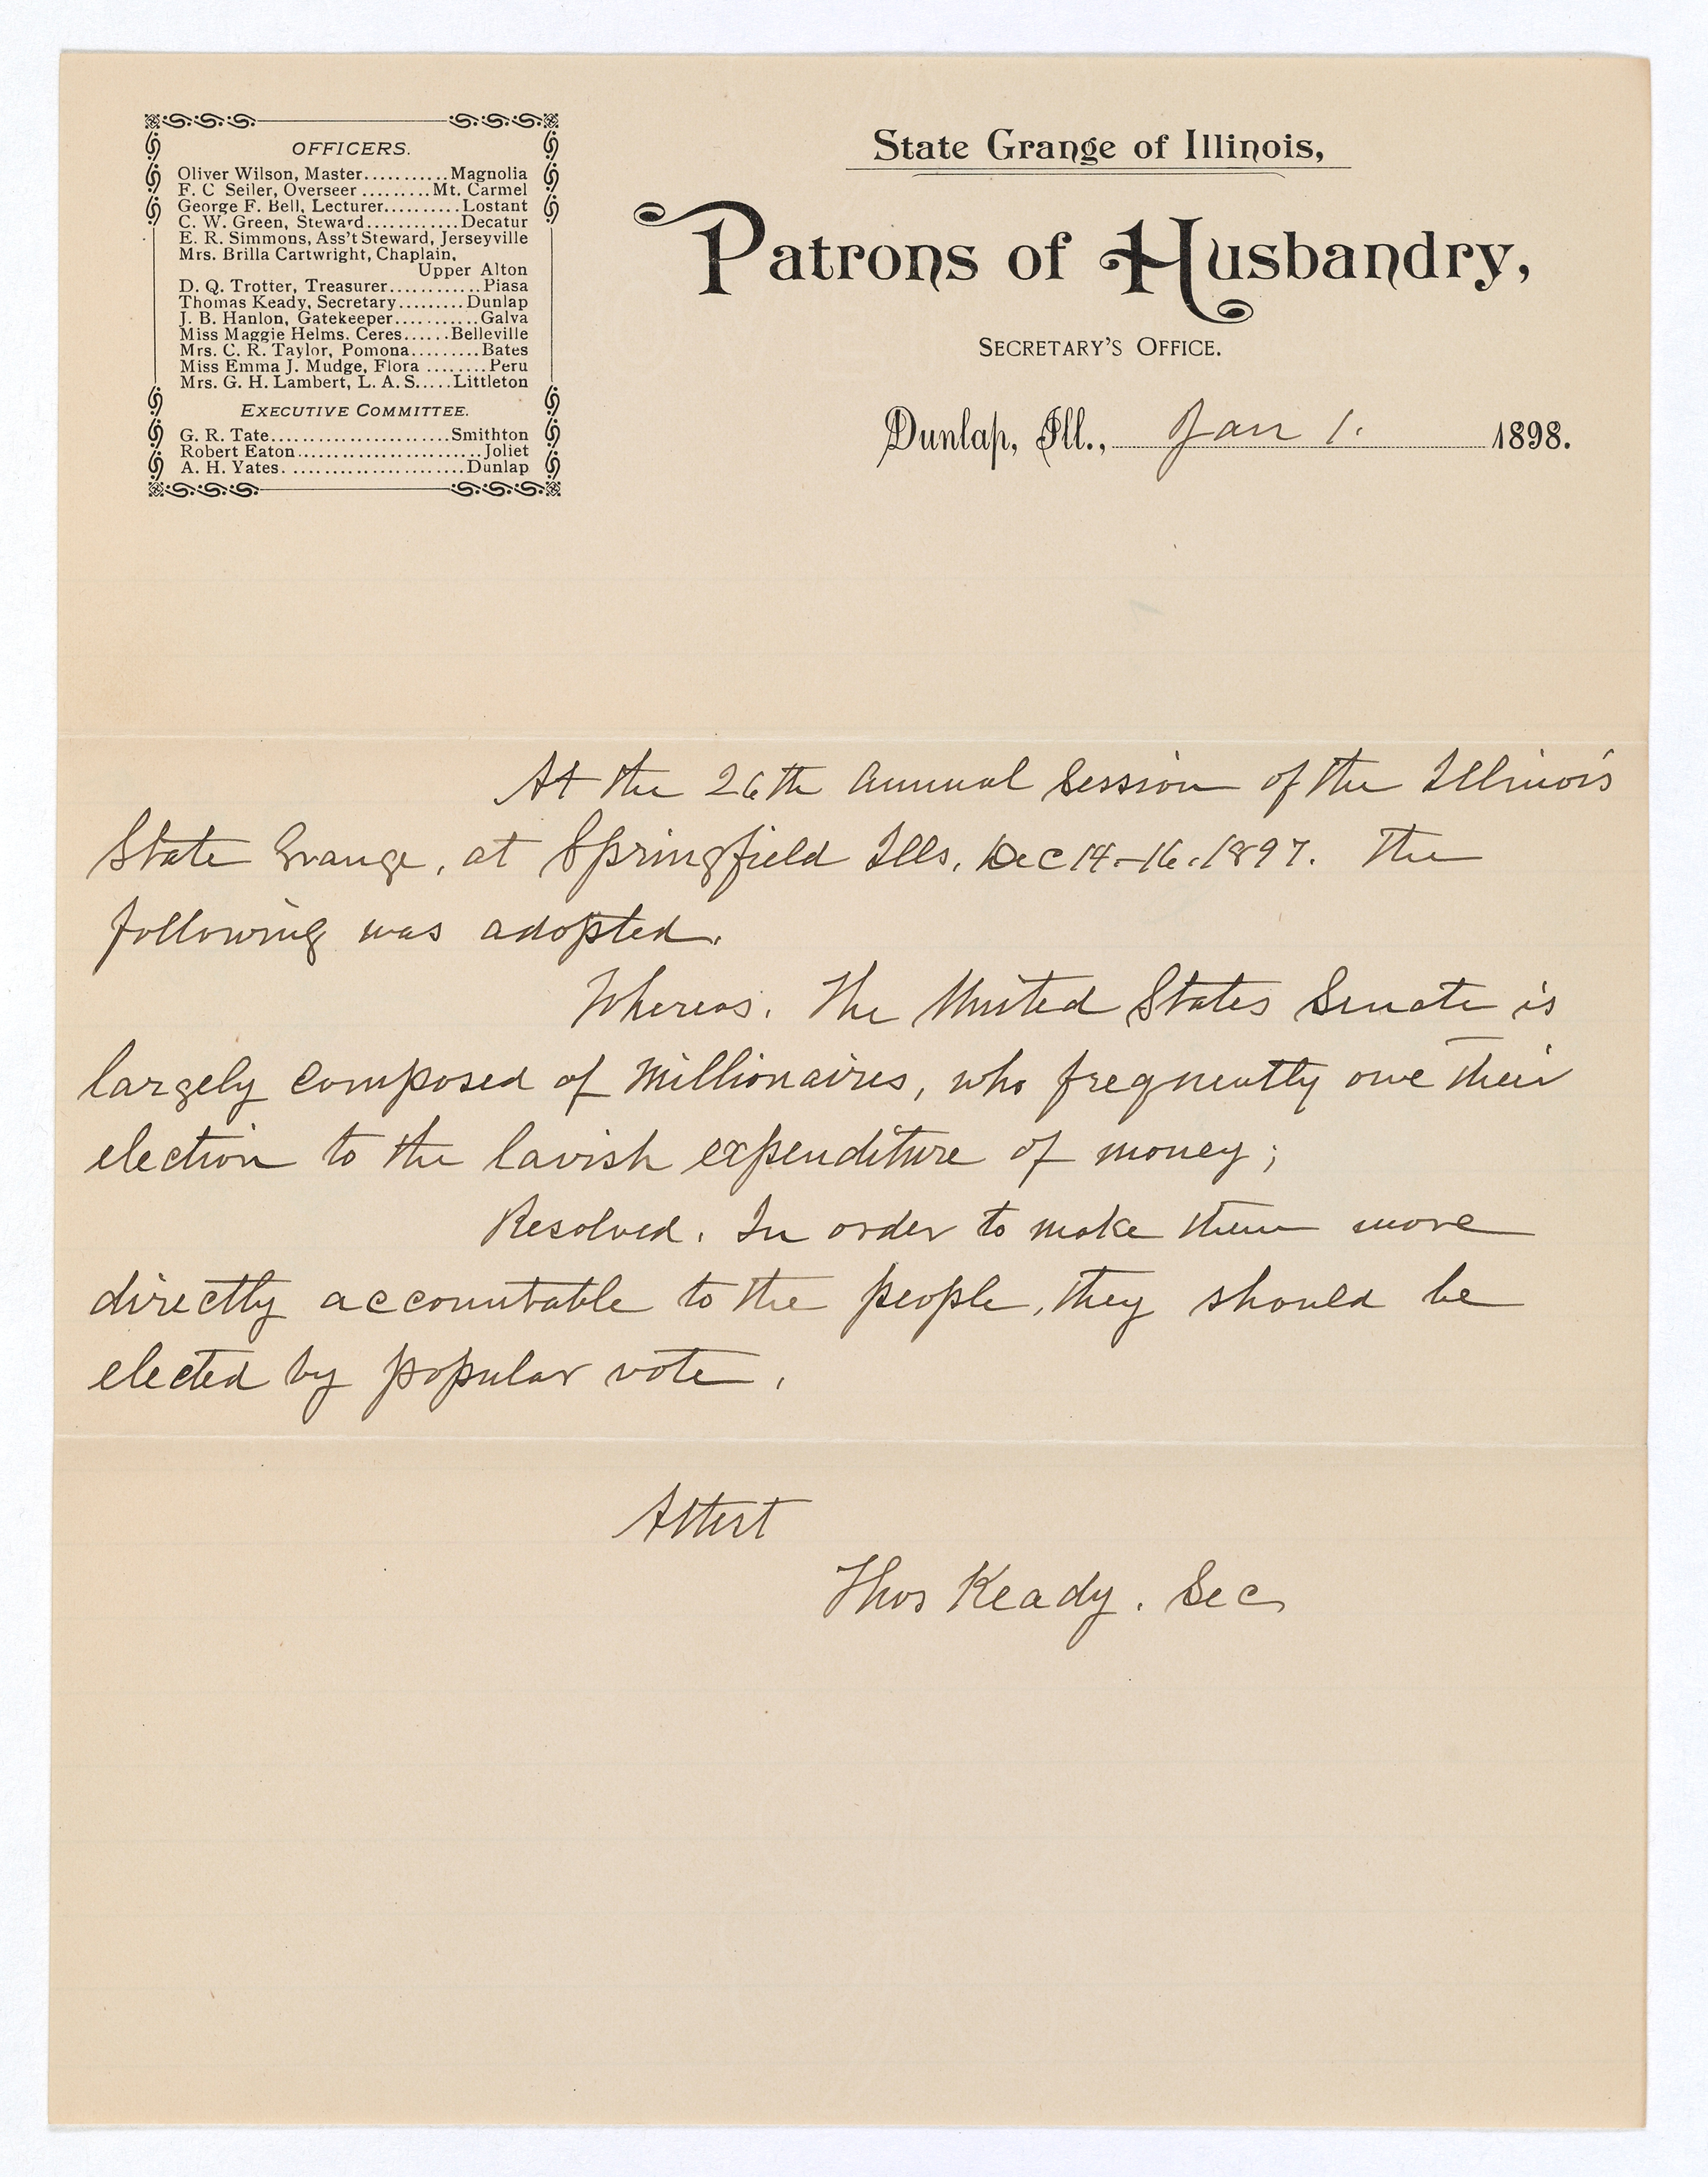 OFFICERS.
Oliver Wilson, Master..........Magnolia
F. C Seiler, Overseer.........Mt. Carmel
George F. Bell, Lecturer..........Lostant
C. W. Green, Steward............Decatur
E. R. Simmons, Ass't Steward, Jerseyville
Mrs. Brilla Cartwright, Chaplain,
Upper Alton
D. Q. Trotter, Treasurer............Piasa
Thomas Keady, Secretary.........Dunlap
J. B. Hanlon, Gatekeeper...........Galva
Miss Maggie Helms. Ceres......Belleville
Mrs. C. R. Taylor, Pomona.........Bates
Miss Emma J. Mudge, Flora ........Peru
Mrs. G. H. Lambert, L. A. S.....Littleton
EXECUTIVE COMMITTEE.
G. R. Tate........................Smithton
Robert Eaton........................Joliet
A. H. Yates. ......................Dunlap
State Grange of Illinois,
Patrons of Husbandry,
SECRETARY'S OFFICE.
Dunlap, Ill., Jan 1. 1898.
At the 26th Annual Session of the Illinois
State Grange, at Springfield Ills. Dec 14-16. 1897. The
following was adopted.
Whereas. The United States Senate is
largely composed of Millionaires, who frequently owe their
election to the lavish expenditure of money;
Resolved. In order to make them more
directly accountable to the people, they should be
elected by popular vote.
Attest
Thos Keady. Sec